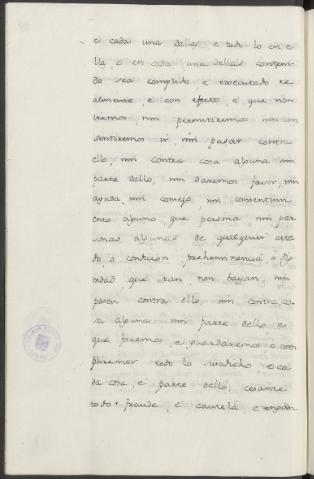 e cada una dellas e todo lo en e
lla, o en cada una dellas conteni
do sea complido e executado re
almente, e con efeto, e que non
iremos, nin permitiremos nin con
sentiremos ir, nin pasar contra
ello, nin contra cosa alguna nin
parte dello, nin daremos favor, nin
ayuda, nin consejo, nin consentim
alguno, que persona, nin per
sonas algunas de qualquier esta
do, o condicion, prehemminencia o
dad que sean, non bayan, nin
pasen contra ello, nin contra co
sa alguna nin parte dello, e
que faremos, e guardaremos e con
pliremos todo lo susodicho e ca
da cosa, e parte dello, cesante
todo fraude, e cautela e